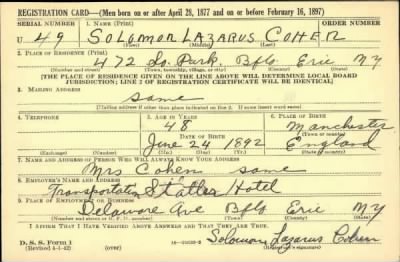 REGISTRATION CARD—(Men born on or after April 28, 1877 and on or before February 16, 1897)
SERIAL NUMBER 1. NAME (Print) ORDER NUMBER
U 49 SOLOMON LAZARUS COHEN
(First) (Middle) (Last)
2. PLACE OF RESIDENCE (Print)
472 So. Park. Bflo Erie NY
(Number and street) (Town, township, village, or city) (County) (State)
[THE PLACE OF RESIDENCE GIVEN ON THE LINE ABOVE WILL DETERMINE LOCAL BOARD
JURISDICTION; LINE 2 OF REGISTRATION CERTIFICATE WILL BE IDENTICAL]
3. MAILING ADDRESS
Same
[Mailing address if other than place indicated on line 2. If same insert word same]
4. TELEPHONE 5. AGE IN YEARS 6. PLACE OF BIRTH
48 Manchester
DATE OF BIRTH (Town or county)
June 24 1892 England
(Exchange) (Number) (Mo.) (Day) (Yr.) (State or country)
7. NAME AND ADDRESS OF PERSON WHO WILL ALWAYS KNOW YOUR ADDRESS
Mrs Cohen same
8. EMPLOYER'S NAME AND ADDRESS
Transportation Statler Hotel
9. PLACE OF EMPLOYMENT OR BUSINESS
Delaware Ave Bflo Erie NY
(Number and street or R. F. D. number) (Town) (County) (State)
I AFFIRM THAT I HAVE VERIFIED ABOVE ANSWERS AND THAT THEY ARE TRUE.
D. S. S. Form 1
(Revised 4-1-42) (over) Solomon Lazarus Cohen